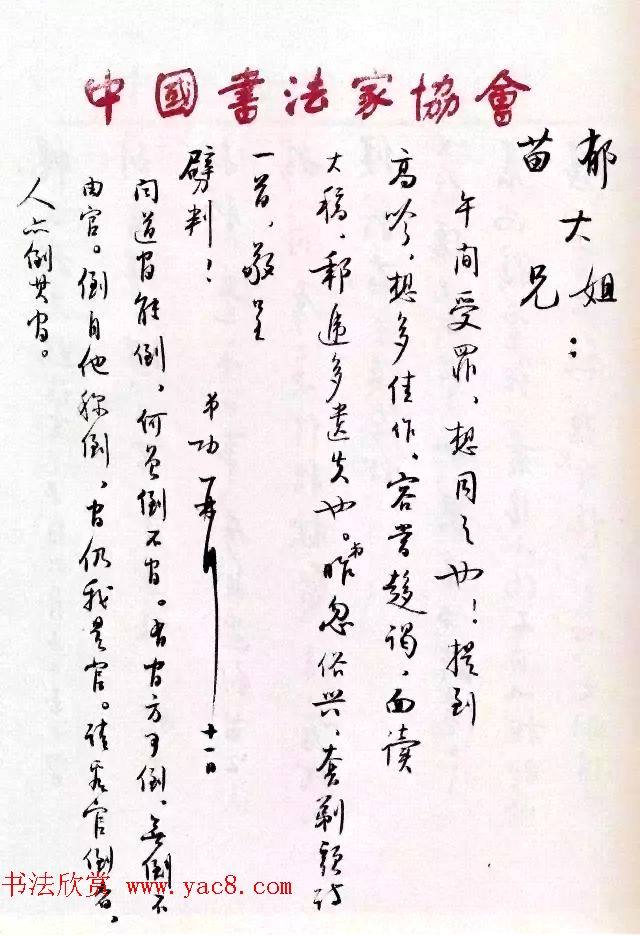 中國書法家協會
郁大姐：
苗兄
午间受罪、想同之也！提到
高吟，想多佳作，容當趨谒，面读
大稿、郵递多遗失也。昨弟忽俗兴、套剃頭诗
一首，敬呈
劈判！
弟功再拜 十一日
闻道官能倒，何曾倒不官。有官方可倒、無倒不
由官。倒自他称倒、官仍我是官。请看官倒者，
人亦倒其官。
书法欣赏 www.yac8.com